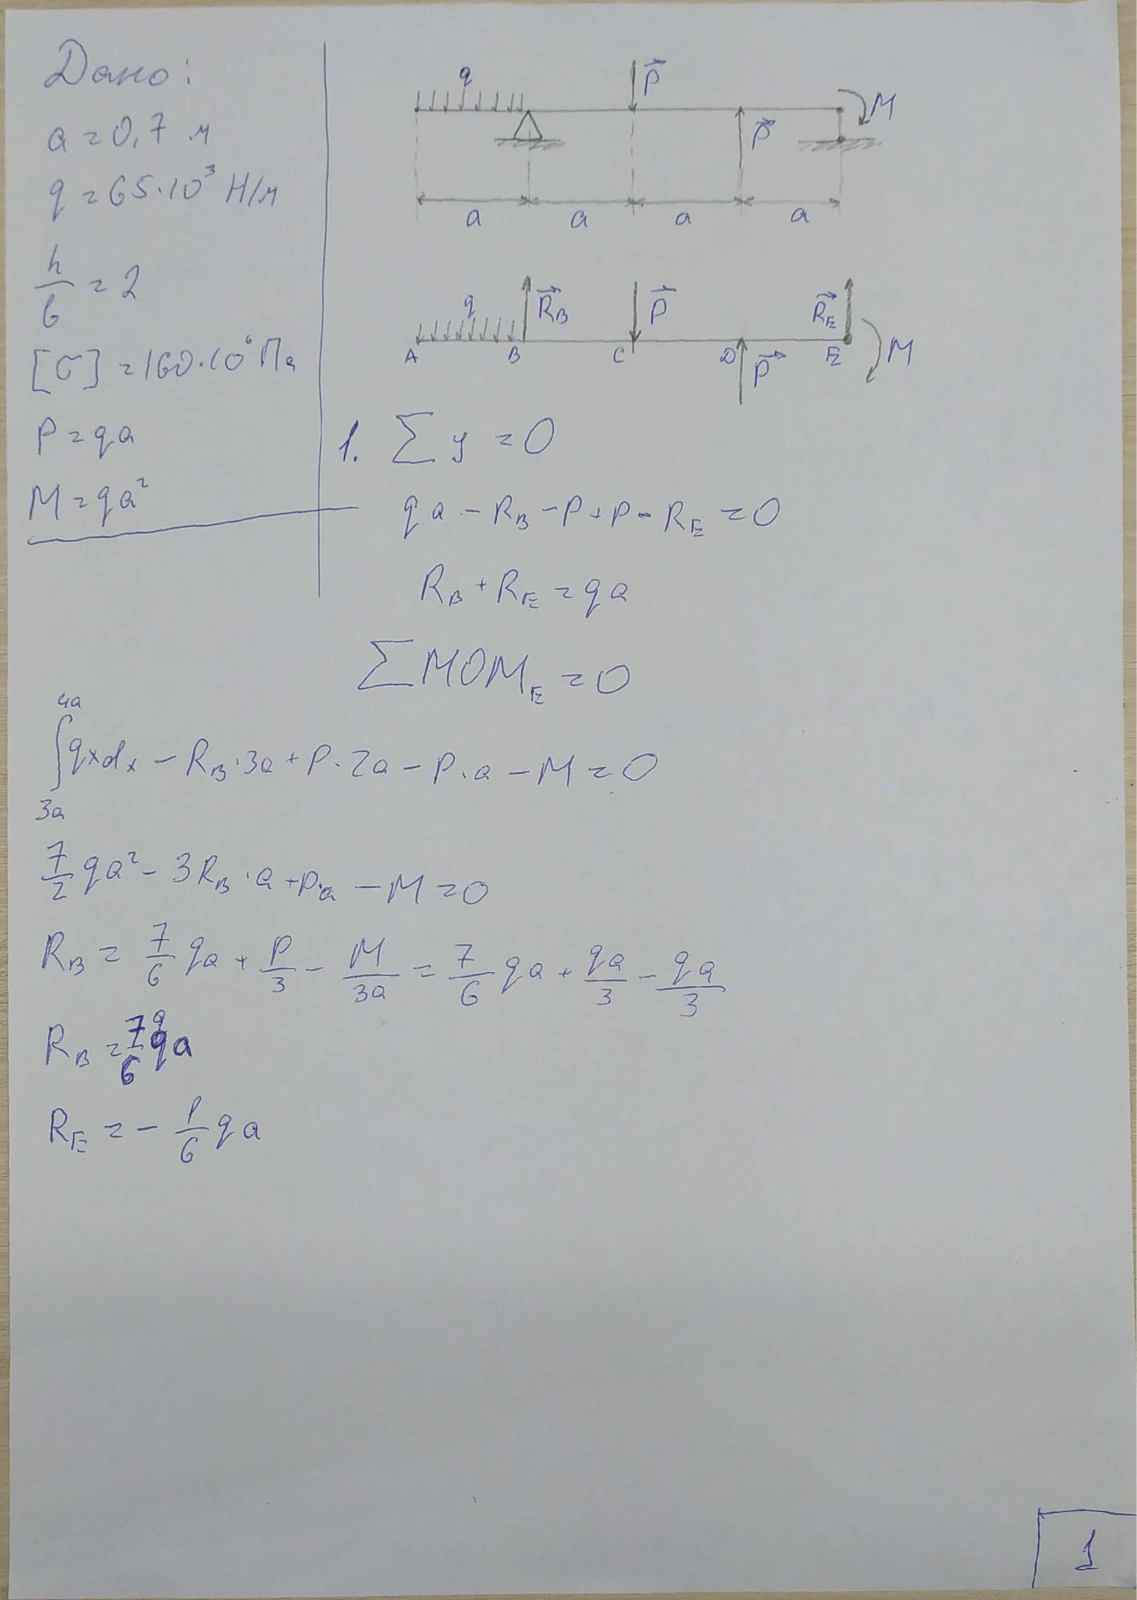 Дано:
a = 0,7 м
q = 65·10³ Н/м
h/b = 2
[σ] = 160·10⁶ Па
P = qa
M = qa²
q P P M
a a a a
q R_B P P R_E M
A B C D E
1. ∑ y = 0
qa - R_B - P + P - R_E = 0
R_B + R_E = qa
∑ MOM_E = 0
∫_{3a}^{4a} qxdx - R_B·3a + P·2a - P·a - M = 0
7/2 qa² - 3R_B·a + P·a - M = 0
R_B = 7/6 qa + P/3 - M/3a = 7/6 qa + qa/3 - qa/3
R_B = 7/6 qa
R_E = - 1/6 qa
1